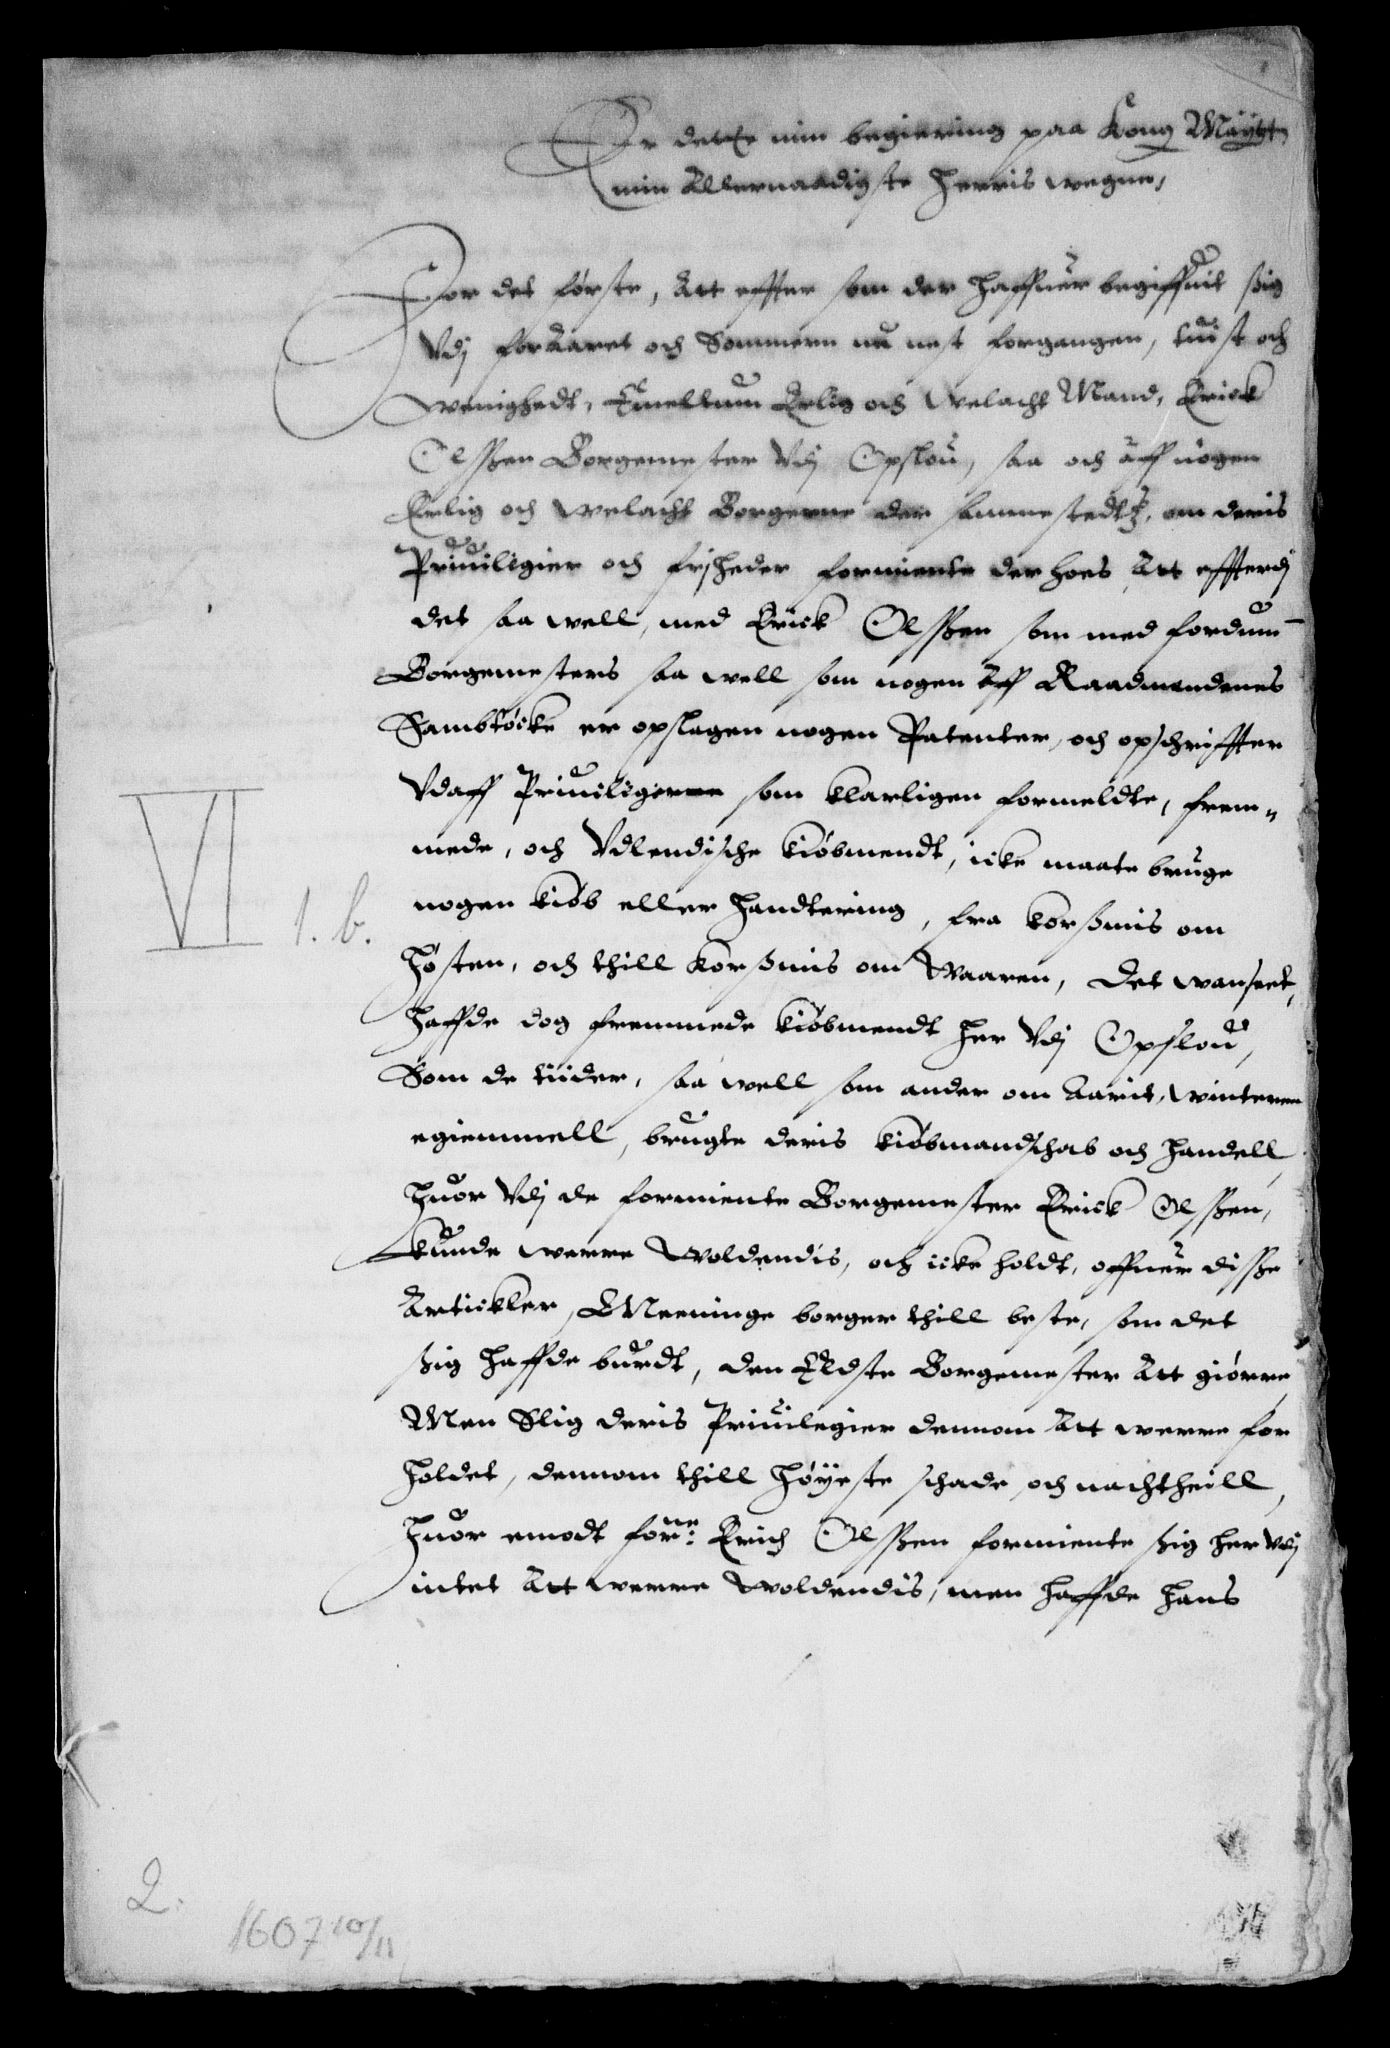 Er dette min begiering paa Kong Maÿtts
min Allernaadigste Herris wegne,
For det første, Att effter som der haffuer begiffuit sig
Vdj forAaret och Sommern nu nest forgangen, tuist och
wenighedt, Emellum Erlig och Welacht Mand, Erick
Olssen Borgemester Vdj Opslou, saa och aff nogen
Erlig och Welacht Borgerne der sammestedtz, om deris
Priuilegier och friheder formiente der hoes Att effterdj
det saa well, med Erick Olssen som med fordum
Borgemesters saa well som nogen Aff Raadmendenes
Samtøcke er opslagen nogen Patenter, och opschriffter
Vdaff Priuiligerne som klarligen formeldte, frem„
mede, och Vdlendische kiøbmendt, icke maate bruge
nogen kiøb eller handtering, fra korsmis om
høsten, och thill korsmis om Waaren, Det wanseet,
haffde dog fremmede kiøbmendt her Vdj Opslou,
Som de tiider, saa well som ander om Aarit, winteren
egiemmell, brugte deris kiøbmandschab och handell,
huor Vdj de formiente Borgemester Erick Olssen,
kunde werre Woldendis, och icke holdt, offuer disse
Artickler, Meeninge borger thill beste, som det
sig haffde burdt, den Eldste Borgemester Att giørre,
Men Slig deris Priuilegier dennom Att werre for
holdet, dennom thill høÿeste schade, och nachtheill,
huor emodt forne: Erich Olssen formiente sig her Vdj
intet Att werre Woldendis, men haffde hans
VI 1. b.
2.
1607 10/11